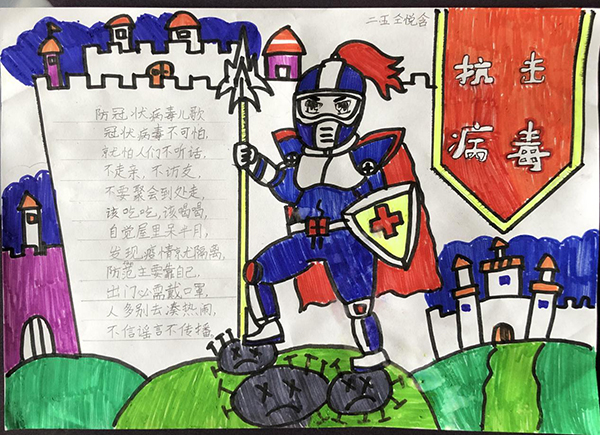 二五仝悦含
抗击
病毒
防冠状病毒儿歌
冠状病毒不可怕,
就怕人们不听话,
不走亲,不访友,
不要聚会到处走,
该吃吃,该喝喝,
自觉屋里呆半月,
发现疫情就隔离,
防范主要靠自己,
出门必需戴口罩,
人多别去凑热闹,
不信谣言不传播.